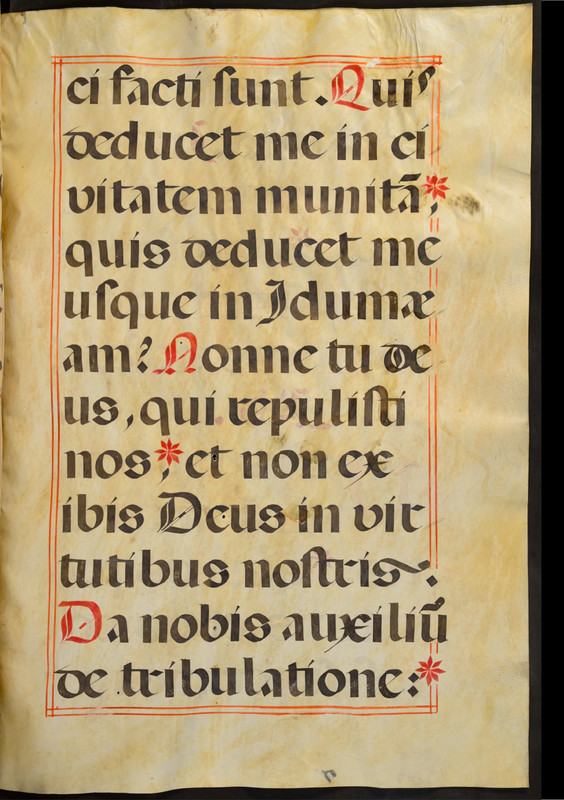 ci facti ſunt. Quis
deducet me in ci
vitatem munitā*,
quis deducet me
uſque in Idumæ
am? Nonne tu de
us, qui repuliſti
nos*, et non ex
ibis Deus in vir
tutibus noſtris~.
Da nobis auxiliū
de tribulatione:*